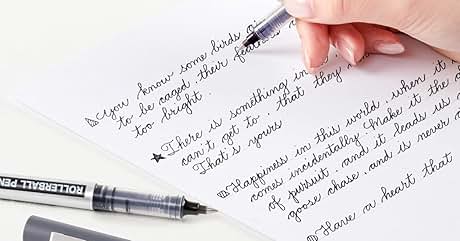 you know some birds
to be caged their feathers
too bright.
There is something in
can't got to.. that they
That's yours
Happiness in this world. when it
comes incidentally. Make it the
of pursuit. and it leads us
goose chase. and is never a
Have a heart that
ROLLERBALL PEN